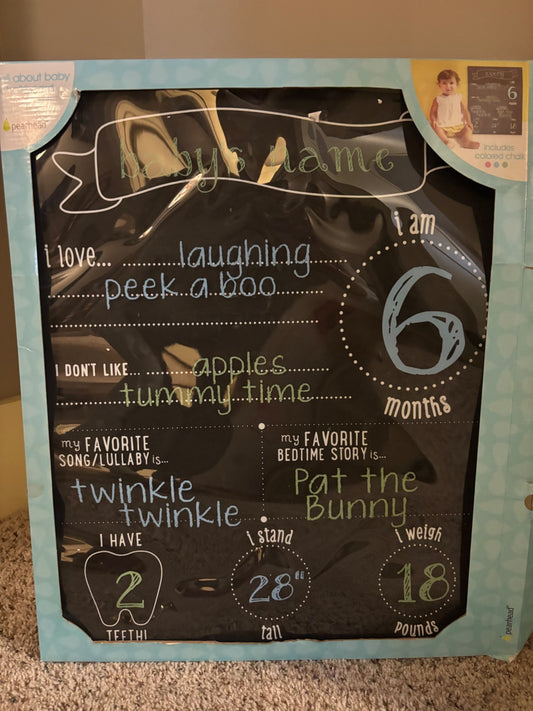 about baby
pearhead
6
includes
colored chalk
baby's name
i love... laughing
peek a boo
i am
6
months
I DON'T LIKE... apples
tummy time
my FAVORITE
SONG/LULLABY is...
twinkle
twinkle
my FAVORITE
BEDTIME STORY is...
Pat the
Bunny
I HAVE
2
TEETH!
i stand
28"
tall
i weigh
18
pounds
pearhead